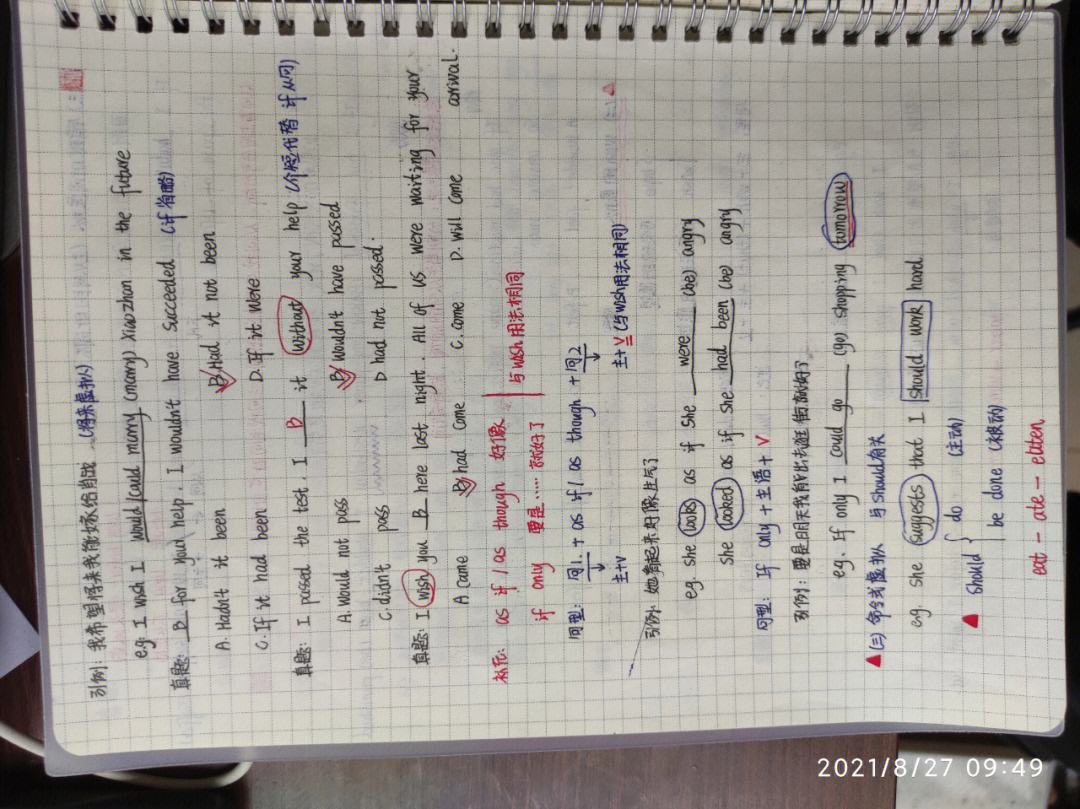 引例：我希望将来我能嫁给肖战 (将来虚拟)
e.g. I wish I would/could marry (marry) Xiaozhan in the future
真题：B for your help, I wouldn't have succeeded (if省略)
A. Hadn't it been B. Had it not been
C. If it had been D. If it were
真题：I passed the test, I B it without your help (介短代替 if从句)
A. Would not pass B. Wouldn't have passed
C. didn't pass D had not passed.
真题：I wish you B here last night. All of us were waiting for your arrival.
A came B had come C. come D. will come
补充：as if / as though 好像
if only 要是……就好了
与wish用法相同
句型：句1 + as if / as though + 句2
主+v 主+V (与wish用法相同)
引例：她看起来好像生气了
eg. she looks as if she were (be) angry
she looked as if she had been (be) angry
句型：If only + 主语 + V
引例：要是明天我有出去逛街就好了
eg. If only I could go (go) shopping tomorrow
▲(三) 命令式虚拟 与should有关
eg. She suggests that I should work hard
▲ should { do (主动)
be done (被动)
eat - ate - eltten
2021/8/27 09:49